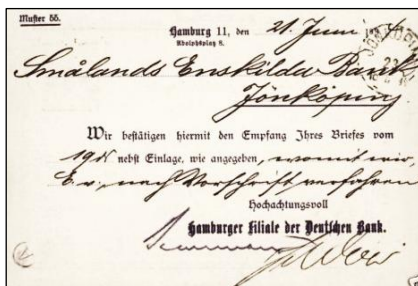 Muster 55.
Hamburg 11, den 21. Juni
Adolphsplatz 8.
JÖNKÖPING
23
Smålands Enskilda Bank
Jönköping
Wir bestätigen hiermit den Empfang Ihres Briefes vom
19ten nebst Einlage, wie angegeben, womit wir,
E. v., nach Vorschrift verfahren
Hochachtungsvoll
Hamburger Filiale der Deutschen Bank.